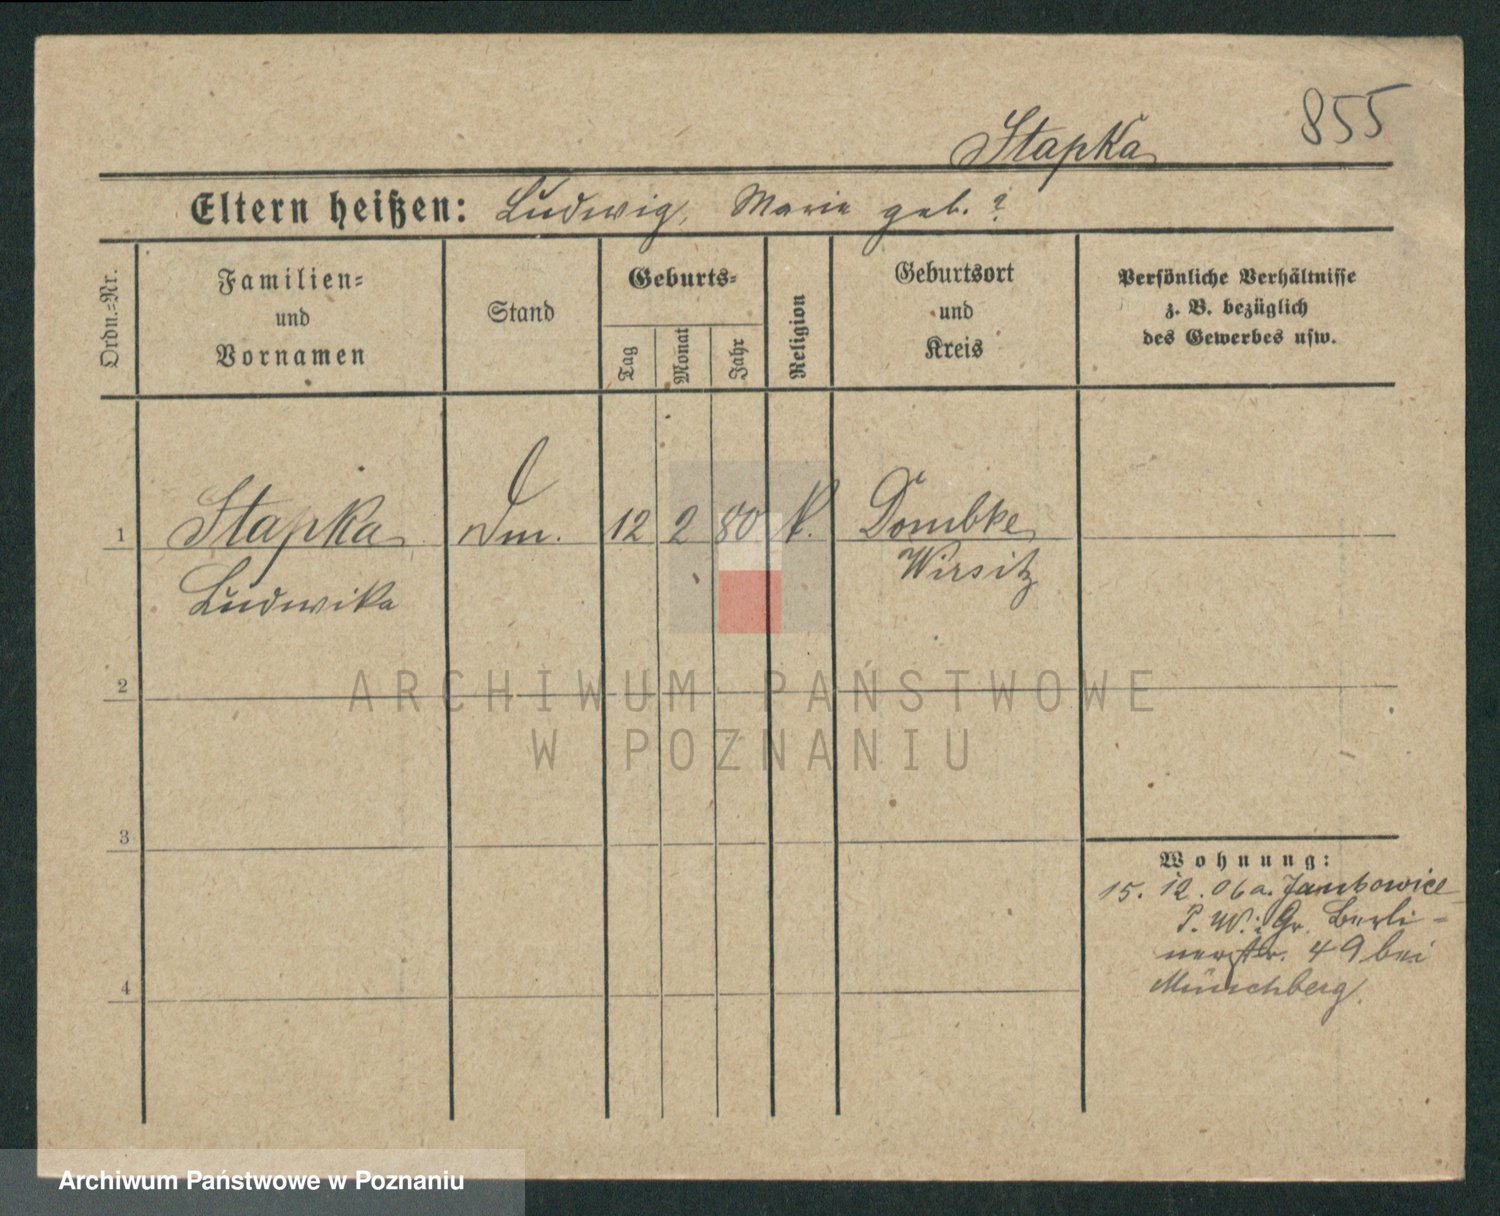 855
Stapka
Eltern heißen: Ludwig, Marie geb. ?
Ordn.=Nr.
Familien=
und
Vornamen
Stand
Geburts=
Tag
Monat
Jahr
Religion
Geburtsort
und
Kreis
Persönliche Verhältnisse
z. B. bezüglich
des Gewerbes usw.
1 Stapka Dm. 12 2 80 k. Dombke
Ludwika Wirsitz
2
3
4
Wohnung:
15. 12. 06 a. Jankowice
P. W. i Gr. Berli-
nerstr. 49 bei
Münchberg.
ARCHIWUM PAŃSTWOWE
W POZNANIU
Archiwum Państwowe w Poznaniu